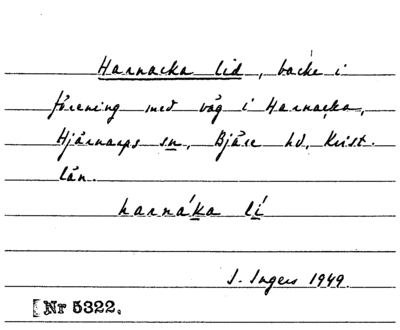 Harnacka lid, backe i
förening med väg i Harnacka,
Hjärnarps sn, Bjäre hd, Krist.
län.
harnáka lí
I. Ingers 1949.
[Nr 5322.